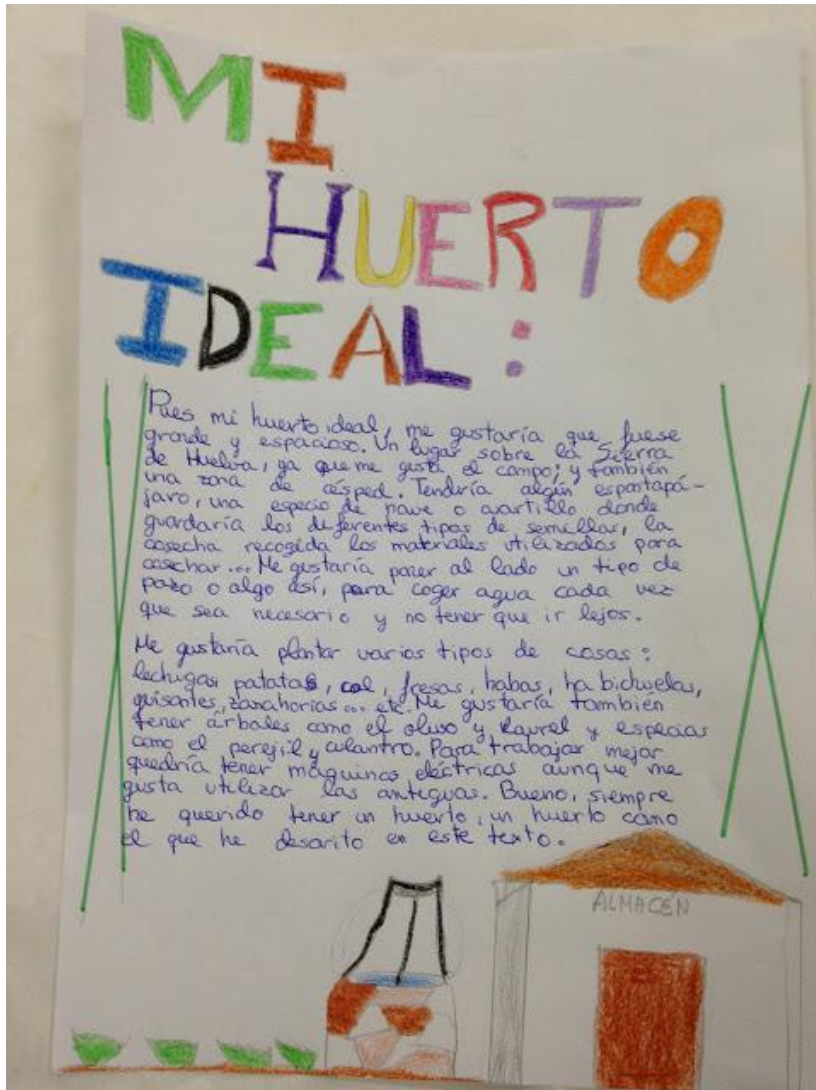 MI
HUERTO
IDEAL:
Pues mi huerto ideal, me gustaría que fuese
grande y espacioso. Un lugar sobre la Sierra
de Huelva, ya que me gusta el campo; y también
una zona de césped. Tendría algún espantapá-
jaro, una especio de nave o cuartillo donde
guardaría los diferentes tipos de semillas, la
cosecha recogida los materiales utilizados para
cosechar... Me gustaría poner al lado un tipo de
pozo o algo así, para coger agua cada vez
que sea necesario y no tener que ir lejos.
Me gustaría plantar varios tipos de cosas:
lechugas patatas, col, fresas, habas, habichuelas,
guisantes, zanahorias... etc. Me gustaría también
tener árboles como el olivo y laurel y especias
como el perejil y culantro. Para trabajar mejor
quedría tener máquinas eléctricas aunque me
gusta utilizar las antiguas. Bueno, siempre
he querido tener un huerto, un huerto como
el que he descrito en este texto.
ALMACÉN